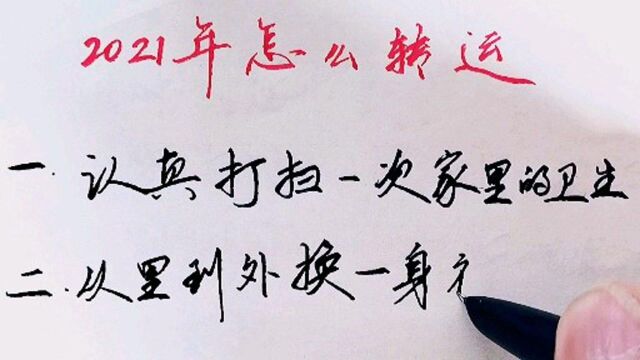 2021年怎么转运
一.认真打扫一次家里的卫生
二.从里到外换一身